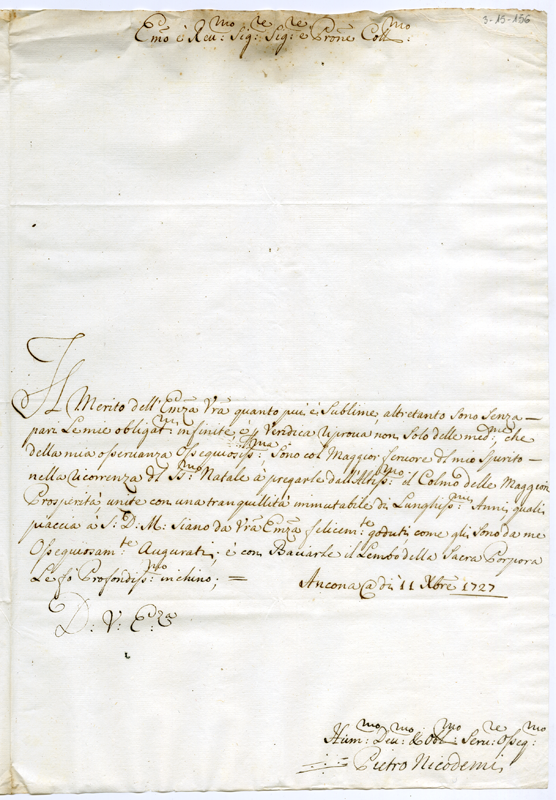 3-15-156
Emo è Reu:mo Sig:re Sig:re e Prone Coll:mo
Il Merito dell'Emza Vra quanto piu è Sublime, altretanto Sono Senza
pari Le mie obligat:ni infinite è p Veridica riproua non Solo delle med:me che
della mia osseruanza Ossequiosiss:ma Sono col Maggior feruore dl mio Spirito
nella ricorrenza dl Ss:mo Natale à pregarle dall'Altiss:mo il Colmo delle Maggiori
Prosperità, unite con una tranquillità immutabile di Lunghiss:mi Anni, quali
piaccia à S: D: M: Siano da Vra Emza felicem:te goduti, come gli Sono da me
Ossequiosam:te Augurati; è con Baciarle il Lembo della Sacra Porpora
Le fò Profondiss:mo inchino; =
Ancona @ dì 11 Xbre 1727
D: V: Eza
Hum:mo Deu:mo & Obl:mo Seru:re Osseq:mo
Pietro Nicodemi